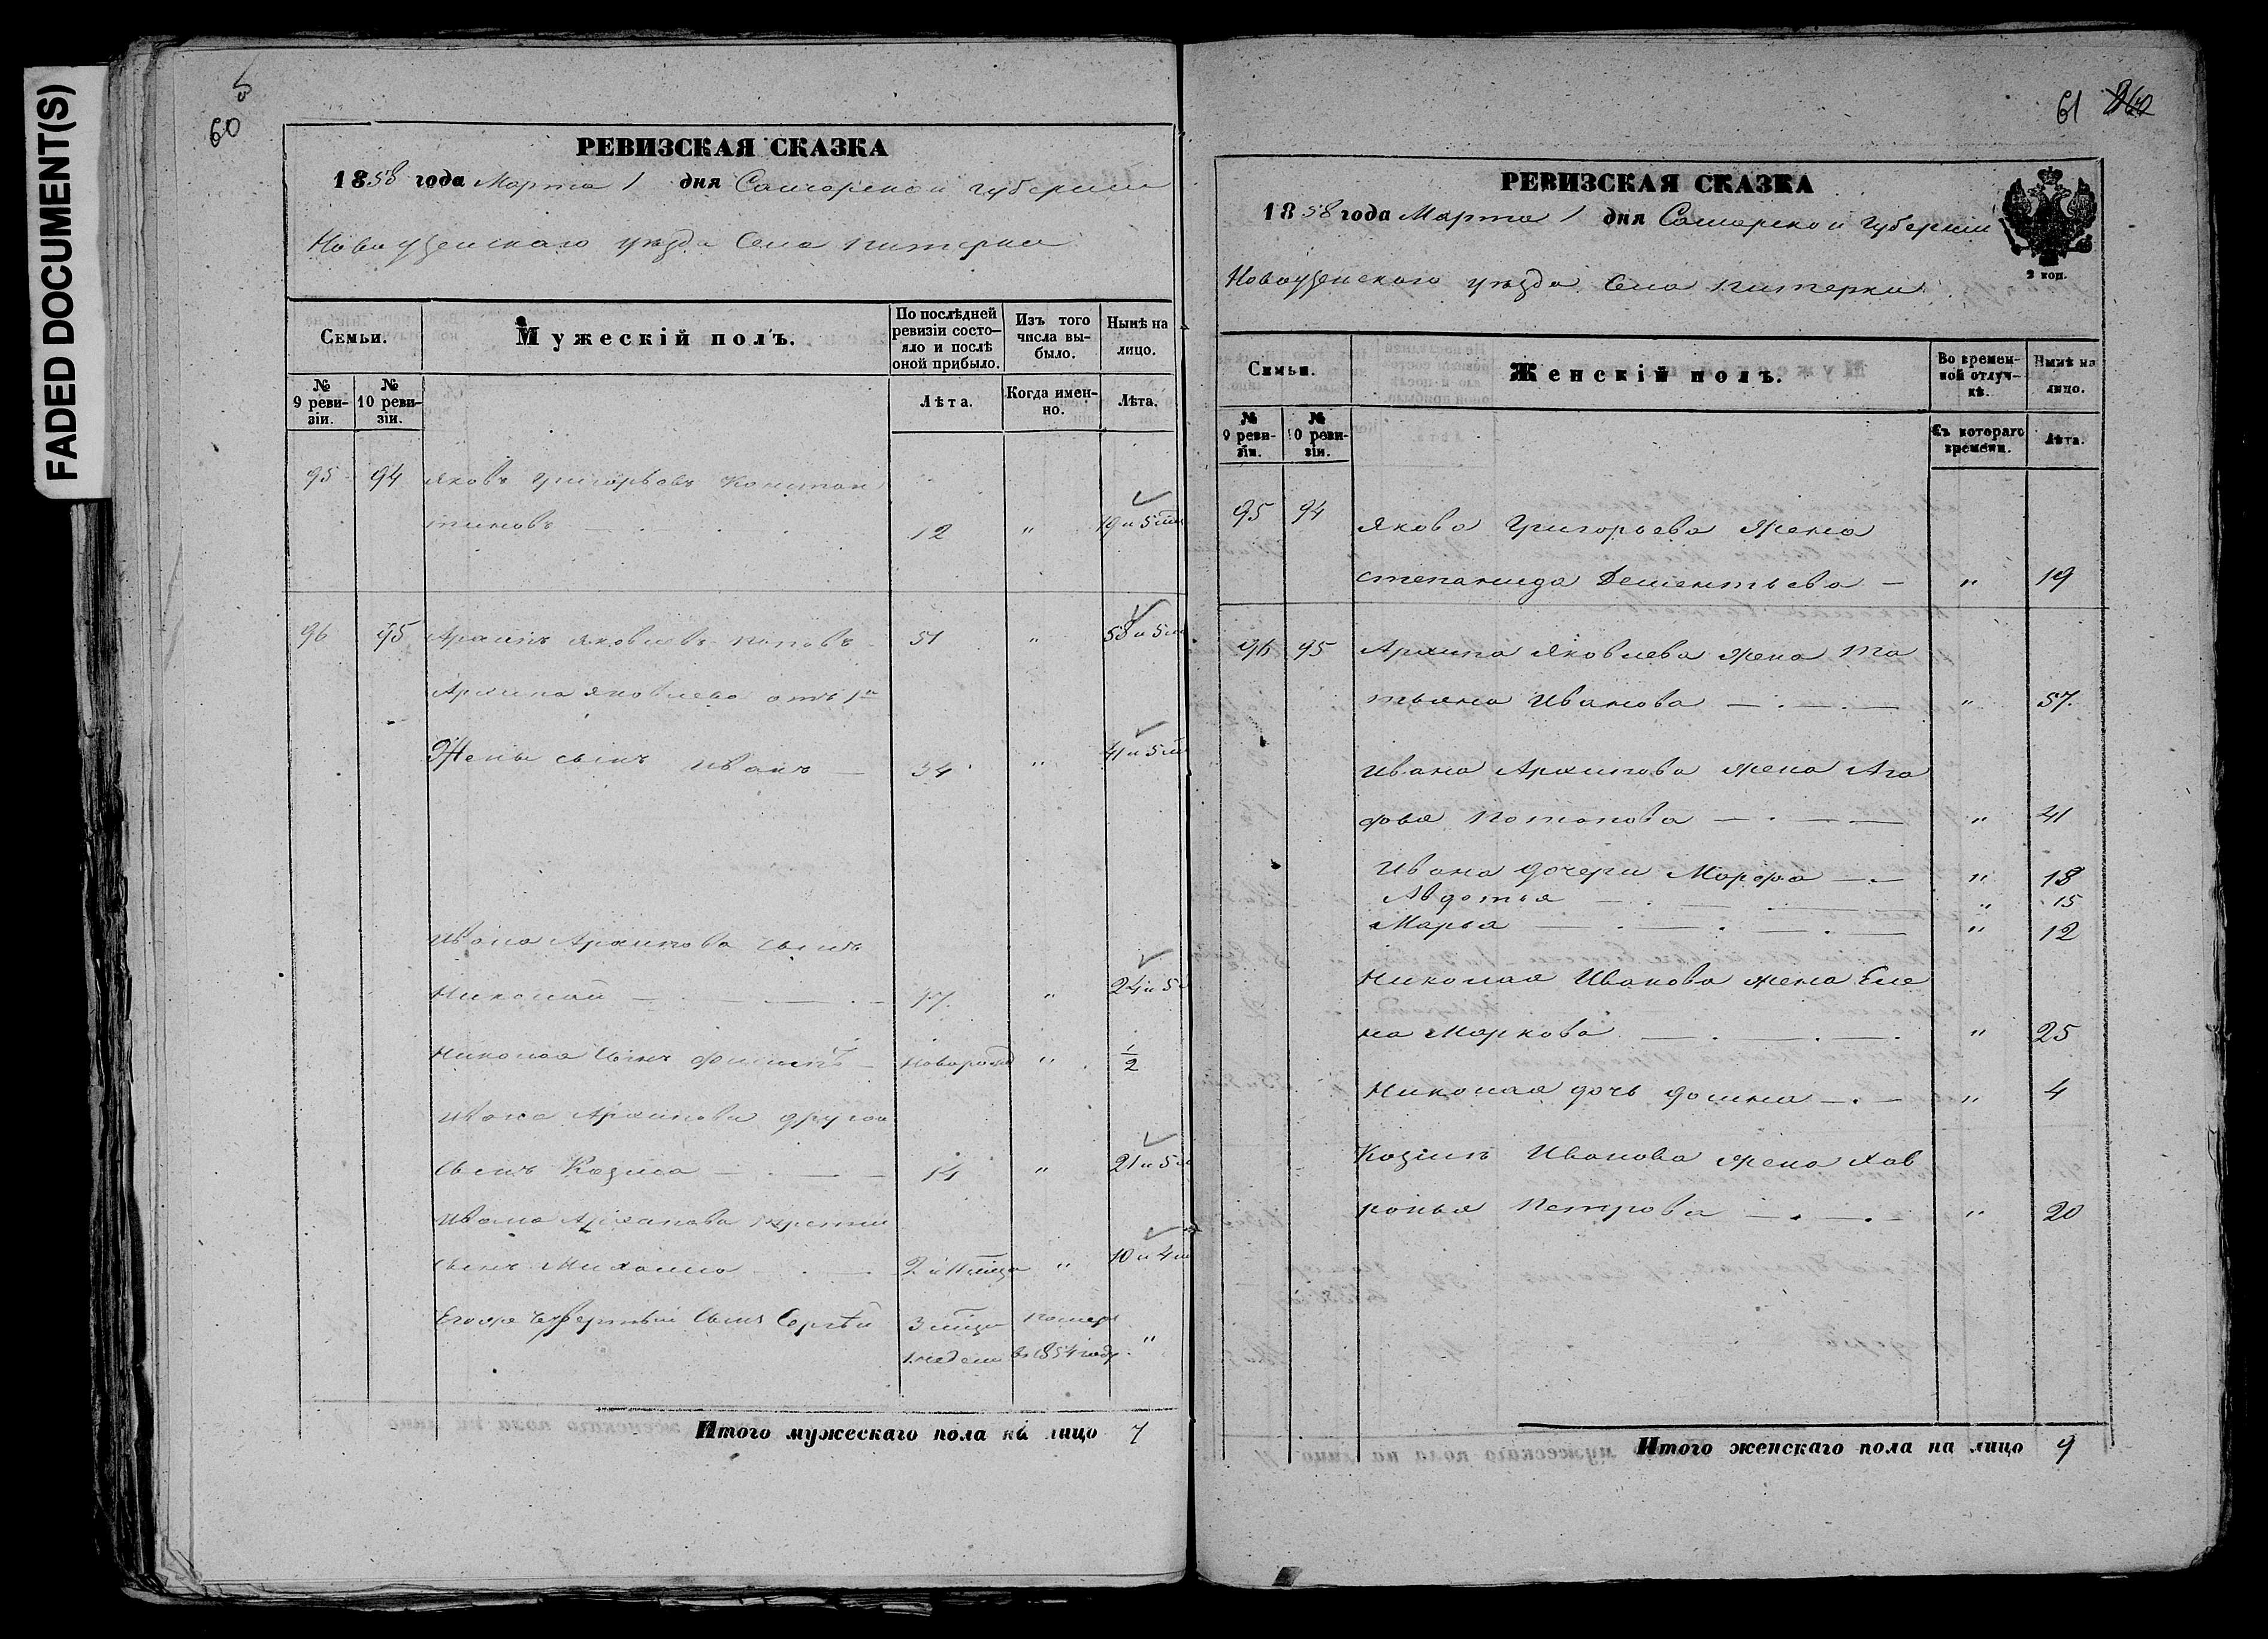 FADED DOCUMENT(S)
5
60
РЕВИЗСКАЯ СКАЗКА
1858 года Марта 1 дня Самарской губернии
Новоузенскаго уѣзда Села Питерки
Семьи.
Мужескій полъ.
По послѣдней ревизіи состояло и послѣ оной прибыло.
Изъ того числа выбыло.
Нынѣ на лицо.
№ 9 ревизіи.
№ 10 ревизіи.
Лѣта.
Когда именно.
Лѣта.
95 94 Яковъ Григорьевъ Констан
тиновъ — 12 " 19 и 5 мц
96 95 Архипъ Яковлевъ Поповъ 51 " 58 и 5 м
Архипа Яковлева отъ 1й
Жены сынъ Иванъ — 34 " 41 и 5 м
Ивана Архипова сынъ
Николай — 17 " 24 и 5
Николая сынъ Филипъ — новорожд " 1/2
Ивана Архипова другой
сынъ Козма — 14 " 21 и 5 м
Ивана Архипова третий
сынъ Михаила — 2 и 11 мцъ " 10 и 4 м
Егоже четвертый сынъ Сергѣй 3 мца помер
1 недели въ 1854 году "
Итого мужескаго пола на лицо 7
61 260
РЕВИЗСКАЯ СКАЗКА
1858 года Марта 1 дня Самарской Губернии
2 коп.
Новоузенскаго уѣзда Села Питерки
Семьи.
Женскій полъ.
Во временной отлучкѣ.
Нынѣ на лицо.
№ 9 ревизіи.
№ 10 ревизіи.
Съ котораго времени.
Лѣта.
95 94 Якова Григорьева жена
Степанида Дементьева — " 19
96 95 Архипа Яковлева жена Та
тьяна Иванова — " 57.
Ивана Архипова жена Ага
фья Потапова — " 41
Ивана дочери Марфа — " 18
Авдотья — " 15
Марья — " 12
Николая Иванова жена Еле
на Маркова — " 25
Николая дочь Домна — " 4
Козмы Иванова жена Хав
ронья Петрова — " 20
Итого женскаго пола на лицо 9